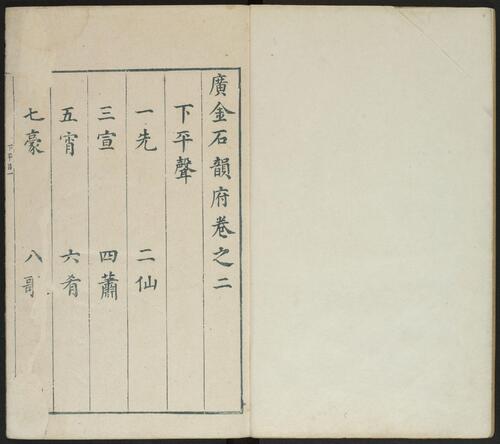 廣金石韻府卷之二
下平聲
一先 二仙
三宣 四蕭
五宵 六肴
七豪 八哥
下平目一